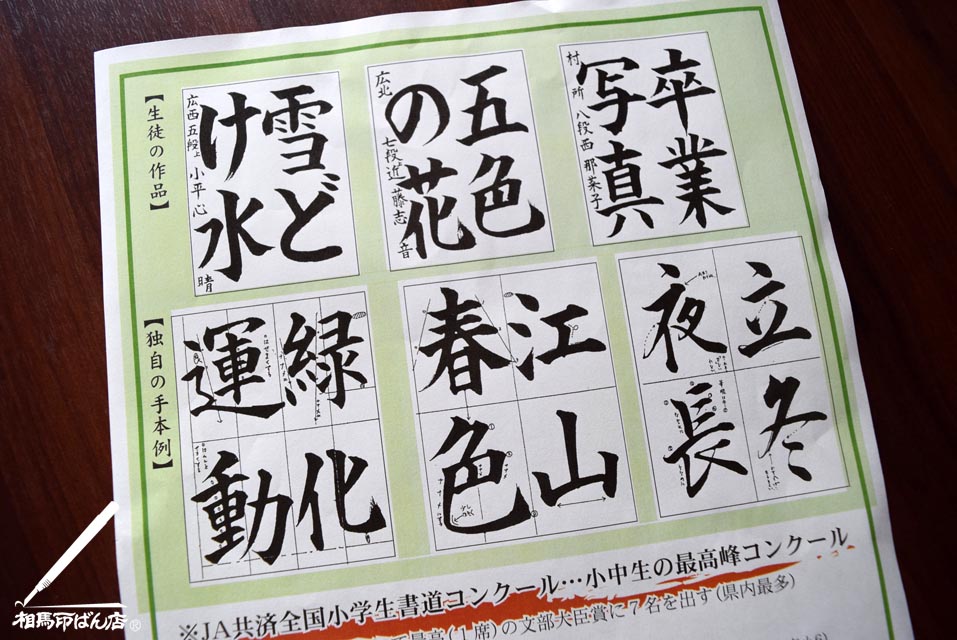 【生徒の作品】
卒業
写真
村所 八段 西 那菜子
五色
の花
広北 七段 近藤志音
雪ど
け水
広西 五段上 小平心晴
【独自の手本例】
立冬
夜長
江山
春色
緑化
運動
※JA共済全国小学生書道コンクール…小中生の最高峰コンクール
最高(1席)の文部大臣賞に7名を出す(県内最多)
相馬印ばん店®